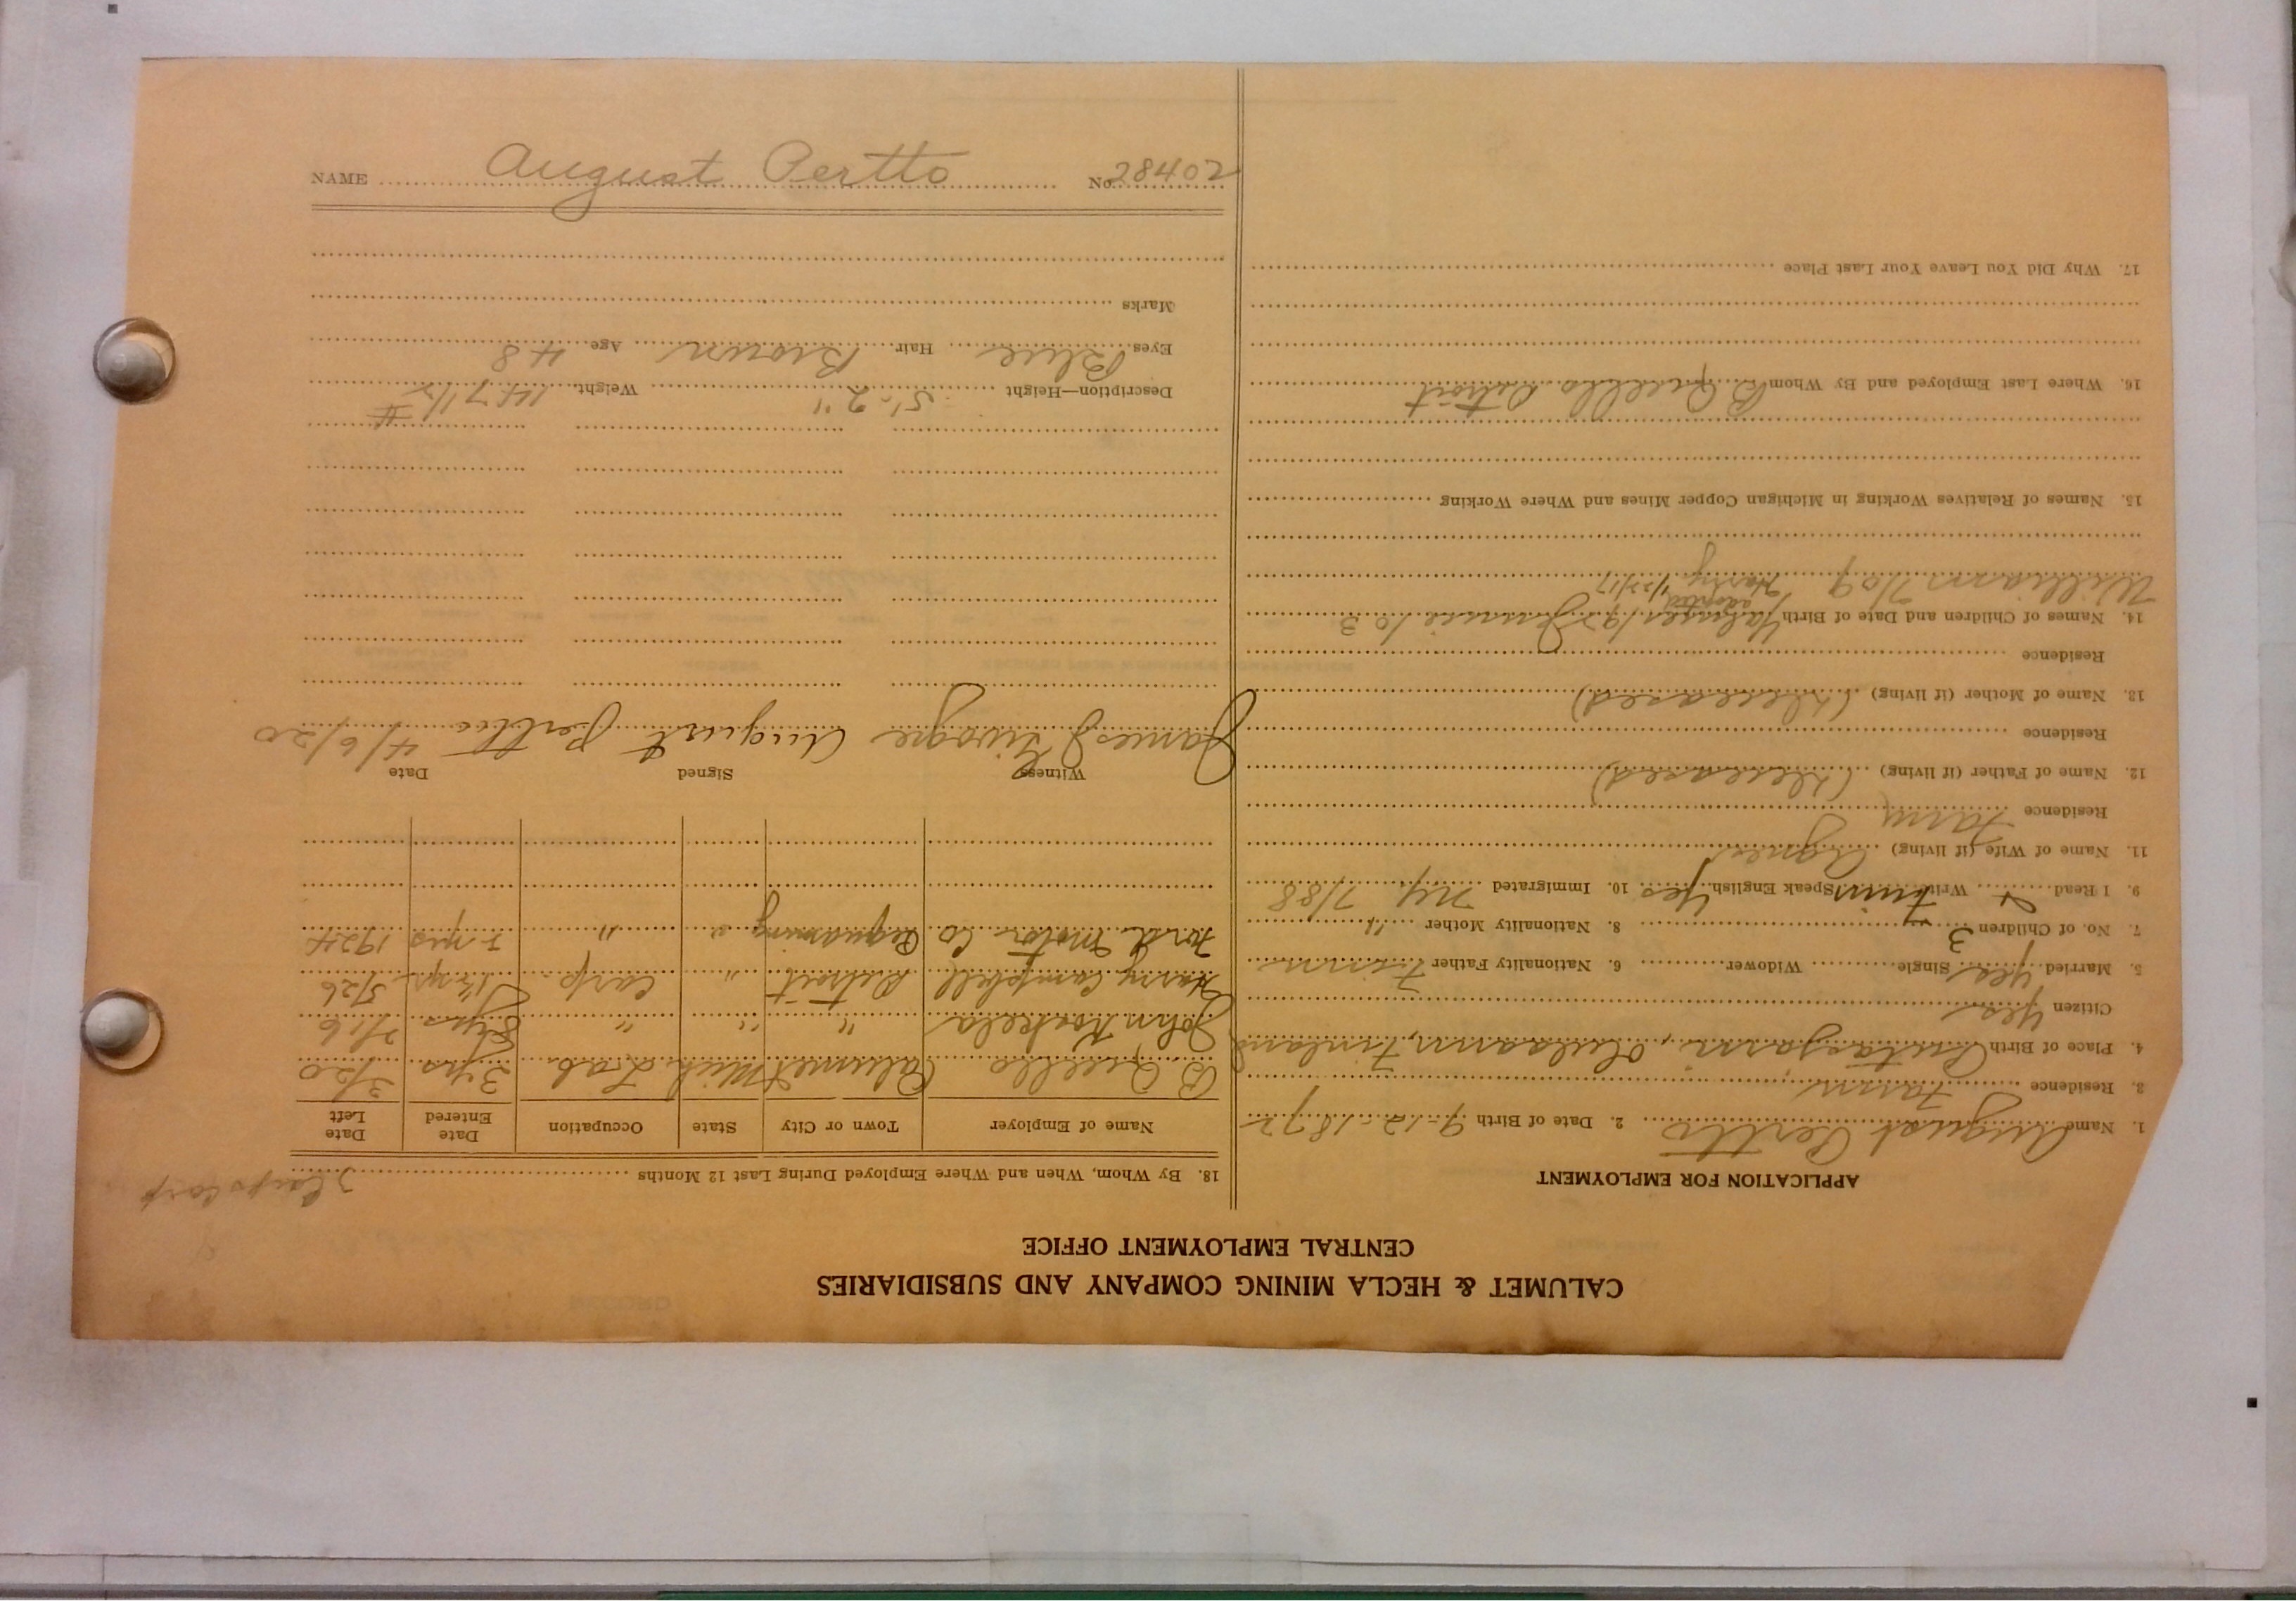 CALUMET & HECLA MINING COMPANY AND SUBSIDIARIES
CENTRAL EMPLOYMENT OFFICE
APPLICATION FOR EMPLOYMENT
1. Name August Pertto 2. Date of Birth 9-12-1872
3. Residence Farm
4. Place of Birth Finland
Citizen Yes
5. Married Yes Single Widower 6. Nationality Father Finn
7. No. of Children 3 8. Nationality Mother "
9. I Read Write Finn Speak English Yes 10. Immigrated N.Y. 7/88
11. Name of Wife (if living) Agnes
Residence Farm
12. Name of Father (if living) (Deceased)
Residence
13. Name of Mother (if living) (Deceased)
Residence
14. Names of Children and Date of Birth Jennie 10 3
adopted
William 7/09 Harry 1/27/17
15. Names of Relatives Working in Michigan Copper Mines and Where Working
16. Where Last Employed and By Whom B Quello Detroit
17. Why Did You Leave Your Last Place
18. By Whom, When and Where Employed During Last 12 Months
Name of Employer Town or City State Occupation Date Entered Date Left
B. Quello Calumet Mich Lab 3 yrs 3/20
John Koskela " " " 8 yrs 7/16
Harry Campbell Detroit " Carp 1½ yr 5/26
Ford Motor Co Pequaming " " yrs 1924
Witness Signed Date
James August Pertto 4/6/20
Description—Height 5'-2" Weight 147 1/2 #
Eyes Blue Hair Brown Age 48
Marks
NAME August Pertto No. 28402